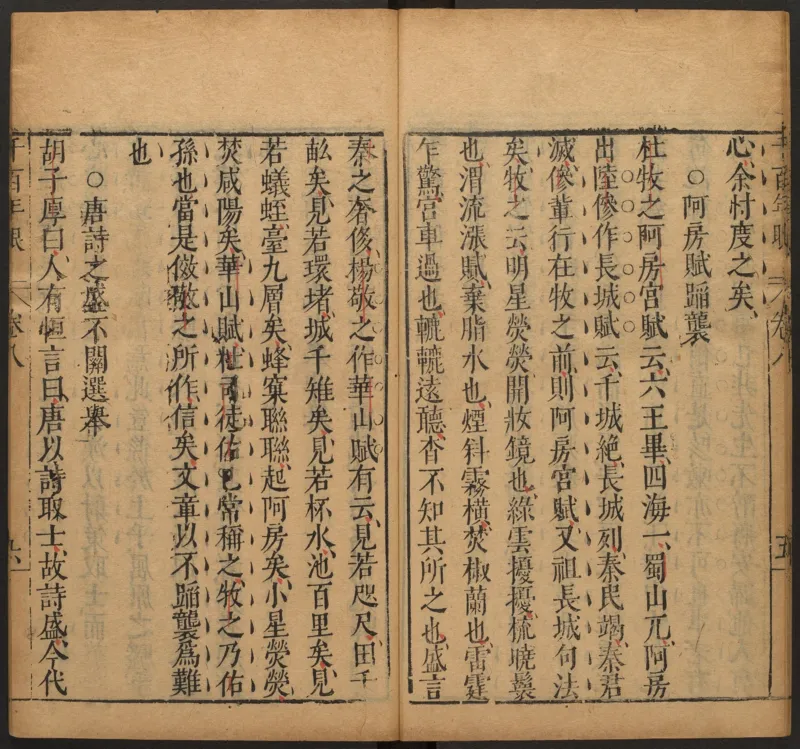 心、余忖度之矣、
○阿房賦蹈襲
杜牧之阿房宮賦云、六王畢、四海一、蜀山兀、阿房
出、陸傪作長城賦云、千城絕、長城列、秦民竭、秦君
滅、傪輩行在牧之前、則阿房宮賦又祖長城句法
矣、牧之云、明星熒熒、開妝鏡也、綠雲擾擾、梳曉鬟
也、渭流漲賦、棄脂水也、煙斜霧橫、焚椒蘭也、雷霆
乍驚、宮車過也、轆轆遠聽、杳不知其所之也、盛言
秦之奢侈、楊敬之作華山賦有云、見若咫尺、田千
畝矣、見若環堵、城千雉矣、見若杯水、池百里矣、見
若蟻蛭、臺九層矣、蜂窠聯聯、起阿房矣、小星熒熒、
焚咸陽矣、華山賦、杜司徒佑已常稱之、牧之乃佑
孫也、當是倣敬之所作、信矣、文章以不蹈襲為難
也、
○唐詩之盛不關選舉
胡子厚曰、人有恒言曰、唐以詩取士、故詩盛、今代
千百年眼
卷八
五
千百年眼
卷八
六